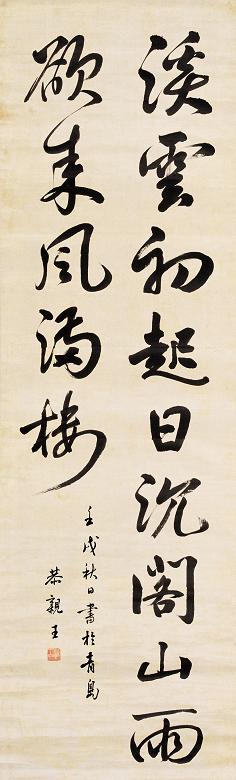 溪雲初起日沉閣山雨
欲來風滿樓
壬戌秋日書於青島
恭親王